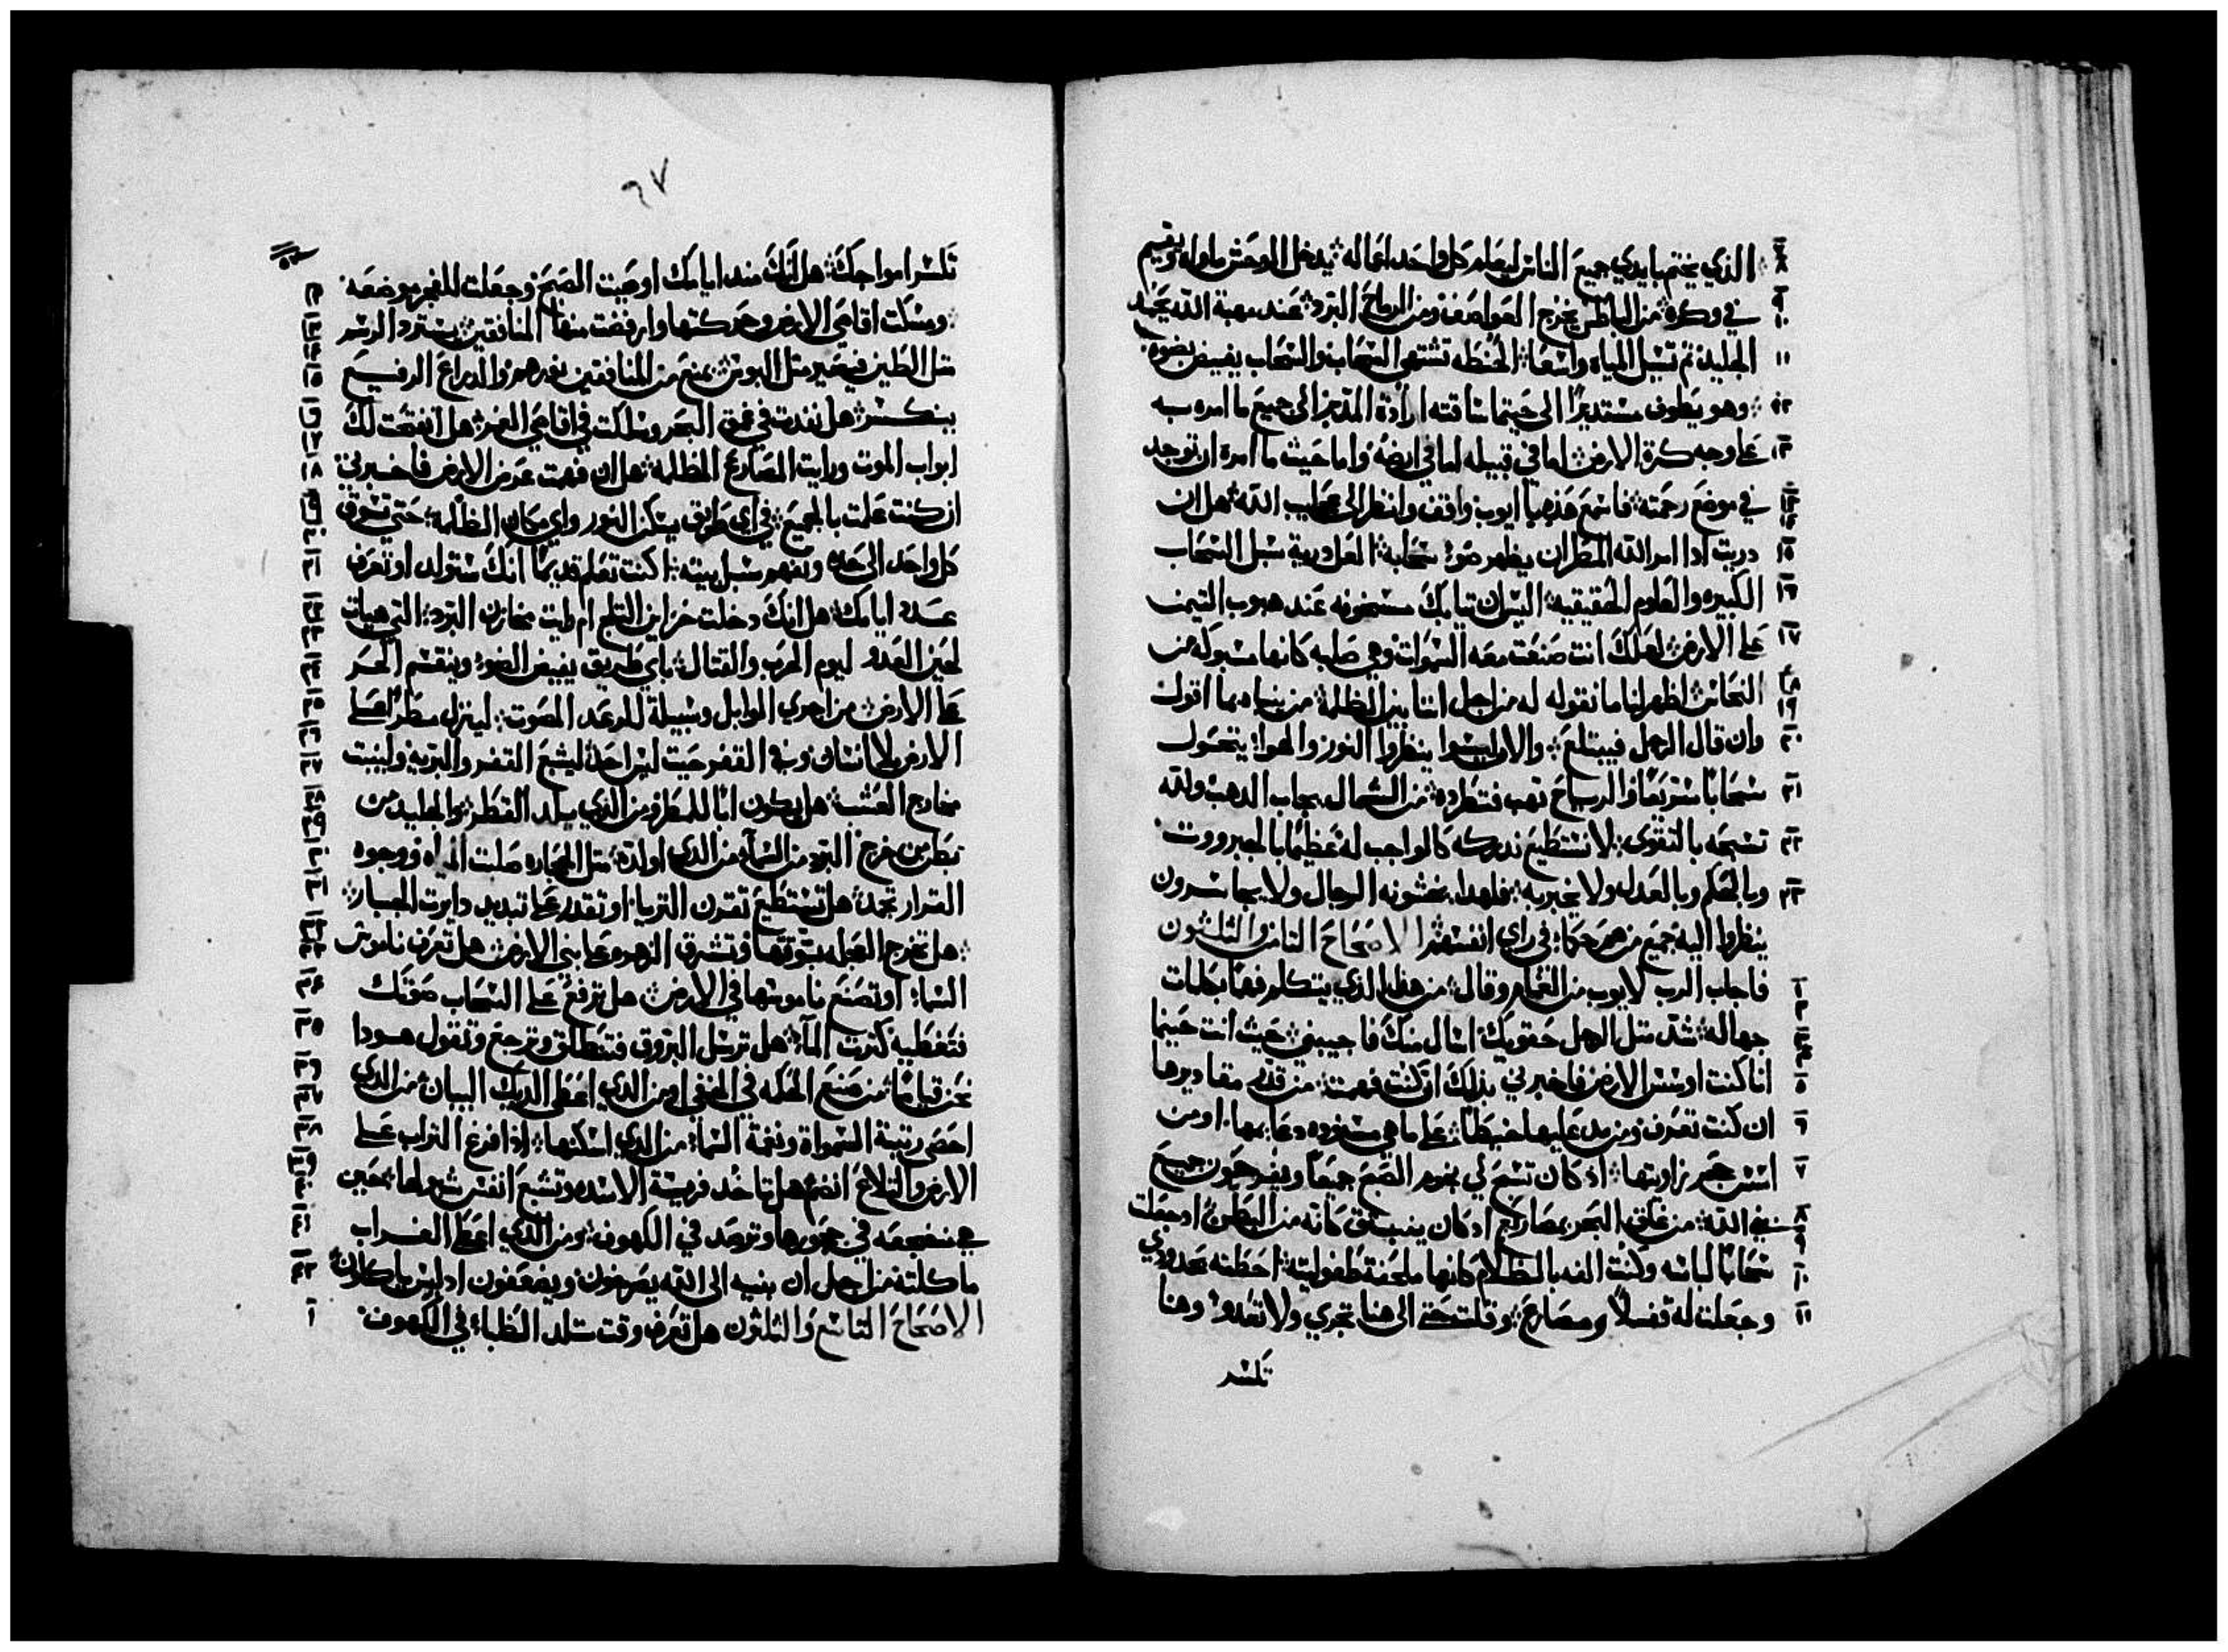 الذي يختم بايدي جميع الناس ليعلم كل واحد اعماله ۞ يدخل الوحش ماواه ويقيم
في وكره ۞ من الباطن يخرج العواصف ومن الرياح البرد ۞ عند مهبة الله يجمد
الجليد ثم تسيل المياه واسعا ۞ الحنطه تشتهي السحاب والسحاب يفيض بضوه
وهو يطوف مستديرا الى حيثما ساقته ارادة المدبر الى جميع ما امره به
على وجه كرة الارض ۞ اما في قبيله اما في ارضه واما حيث ما امره ان توجد
في موضع رحمته ۞ فاسمع هذه يا ايوب واقف وانظر الى عجايب الله ۞ هل ان
دريت اذا امر الله المطر ان يظهر ضوء سحابه ۞ العل دريت سبل السحاب
الكبيره والعلوم الحقيقيه ۞ اليس ان ثيابك مسخونه عند هبوب التيمن
على الارض ۞ لعلك انت صنعت معه السموات وهي صلبه كانها مسبوكه من
النحاس ۞ اظهر لنا ما نقوله له من اجل اننا بين الظلمة ۞ من ينباه بما اقول
وان قال الرجل فيبتلع ۞ والان ليسوا ينظروا النور والهوا يتحول
سحابا سريعا والرياح تهب فتطرده ۞ من الشمال يجاب الدهب ولله
تسبحه بالتقوى ۞ لا نستطيع ندركه كالواجب له عظيما بالجبرووت
وبالحكم وبالعدل ولا يخبر به ۞ فلهدا يخشونه الرجال ولا يجاسرون
ينظروا اليه جميع من هم حكما في راي انفسهم ۞ الاصحاح الثامن والثلثون
فاجاب الرب لايوب من الغمام وقال ۞ من هذا الذي يتكلم فهما بكلمات
جهاله ۞ شد مثل الرجل حقويك اسال منك فاجيبني ۞ حيث انت حينما
انا كنت اوسس الارض فاخبرني بذلك ان كنت فهمت ۞ من قدر مقاديرها
ان كنت تعرف ومن مد عليها خيطا ۞ على ما هي مسنوده دعايمها او من
اسس حجر زاويتها ۞ اذ كان تسبح لي نجوم الصبح جميعا ويفرحون جميع
بني الله ۞ من غلق البحر بمصاريع اذ كان ينبثق كانه من البطن ۞ اذ جعلت
سحابا لباسه وكنت الفه بالظلام كانها ملحفة طفوليته ۞ احطته بحدودي
وجعلت له قفلا ومصاريع ۞ وقلت حتى الى هنا تجري ولا تتعدا وهنا
تكسر
٦٧
تكسر امواجك ۞ هل انك منذ ايامك اوصيت الصبح وجعلت للفجر موضعه
ومسكت اقاصي الارض وحركتها وارفضت منها المنافقين ۞ يسترد الرسم
مثل الطين فيصير مثل اللبوس ۞ يمنع من المنافقين نورهم والدراع الرفيع
ينكسر ۞ هل نفدت في عمق البحر وسلكت في اقاصي الغمر ۞ هل انفتحت لك
ابواب الموت ورايت المصاريع المظلمه ۞ هل ان فهمت عرض الارض فاخبرني
ان كنت علمت بالجميع ۞ في اي طريق يسكن النور واي مكان الظلمه ۞ حتى تسوق
كل واحد الى حده وتفهم سبل بيته ۞ اكنت تعلم قديما انك ستولد او تعرف
عدد ايامك ۞ هل انك دخلت خزاين الثلج ام رايت مخازن البرد ۞ التي هيات
لحين العدو ليوم الحرب والقتال ۞ باي طريق يفيض الضوء وينقسم الحر
على الارض ۞ من اجري الوابل وسبيلة للرعد المصوت ۞ لينزل مطر على
الارض بلا انسان وفي القفر حيث ليس احد ۞ ليشبع القفر والبريه ولينبت
مخارج العشب ۞ هل يكون ابا للمطر ومن الذي يلد القطر ۞ والجليد من
بطن من خرج البرد من السماء من الذي اولده ۞ مثل الحجاره صلبت المياه ووجوه
القرار تجمد ۞ هل تستطيع تقرن التريا او تقدر على تبديد دايرت الجبار ۞
هل تخرج العجله بوقتها وتشرق الزهره على بني الارض ۞ هل تعرف ناموس
السماء او تصنع ناموسها في الارض ۞ هل ترفع على السحاب صوتك
فتغطيه كثرت الماء ۞ هل ترسل البروق فتنطلق وترجع وتقول هودا
نحن قياما ۞ من صنع الحكمه في الخفي او من الذي اعطى الديك البيان ۞ من الذي
احصى رتبة السمواة ونغمة السماء من الذي اسكنها ۞ اذ افرغ التراب على
الارض والتلاع انضم ۞ هل تاخد فريسة الاسده وتشبع انفس شبولها ۞ حين
هي منضجعه في جحورها وترصد في الكهوف ۞ ومن الذي اعطى الغراب
ماكلته من اجل ان بنيه الى الله يصرخون ويضعفون اذ ليس ماكلون
الاصحاح التاسع والثلثون هل تعرف وقت تلد الظباء في الكهوف